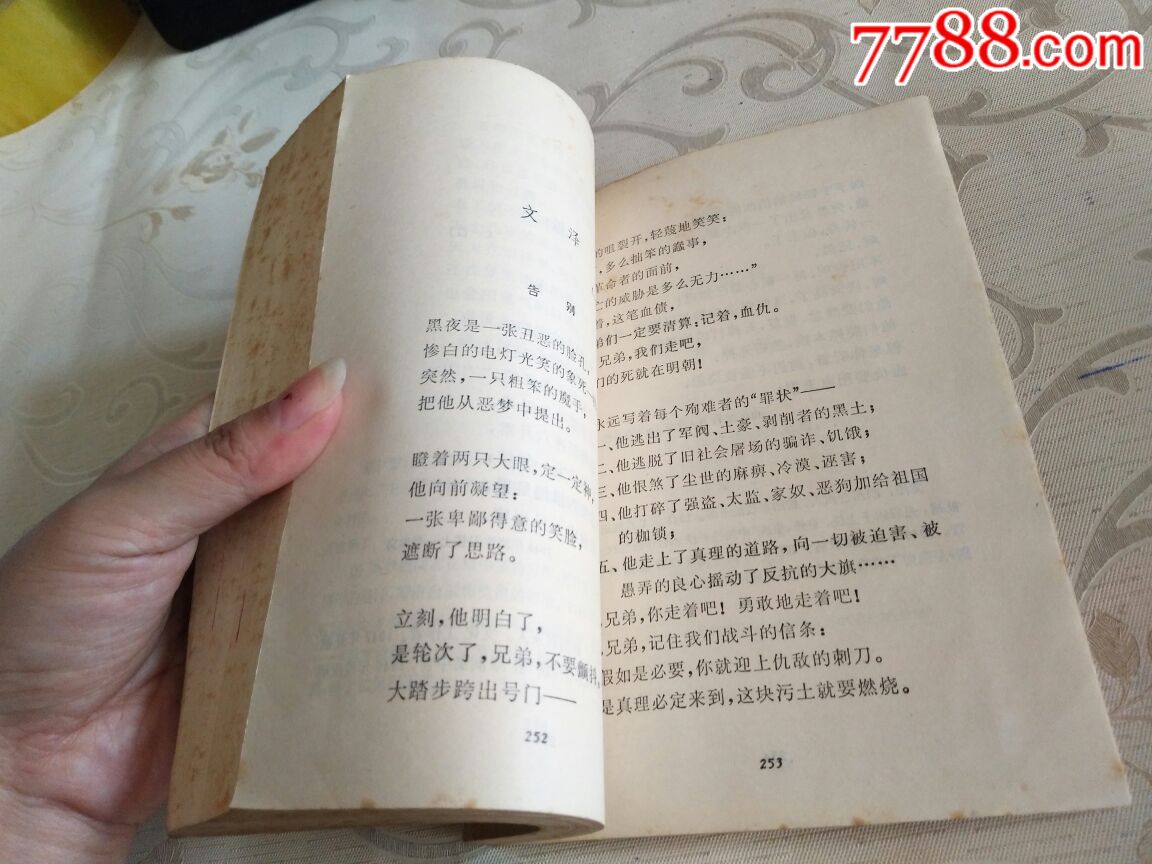 7788.com
文泽
告别
黑夜是一张丑恶的脸孔,
惨白的电灯光笑的象死
突然,一只粗笨的魔手,
把他从恶梦中提出。
瞪着两只大眼,定一定神,
他向前凝望:
一张卑鄙得意的笑脸,
遮断了思路。
立刻,他明白了,
是轮次了,兄弟,不要颤抖,
大踏步跨出号门——
252
的咀裂开,轻蔑地笑笑:
,多么拙笨的蠢事,
革命者的面前,
亡的威胁是多么无力……”
着,这笔血债,
弟们一定要清算;记着,血仇。
兄弟,我们走吧,
们的死就在明朝!
永远写着每个殉难者的“罪状”——
一、他逃出了军阀、土豪、剥削者的黑土;
二、他逃脱了旧社会屠场的骗诈、饥饿;
三、他恨煞了尘世的麻痹、冷漠、诬害;
四、他打碎了强盗、太监、家奴、恶狗加给祖国
的枷锁;
五、他走上了真理的道路,向一切被迫害、被
愚弄的良心摇动了反抗的大旗……
兄弟,你走着吧!勇敢地走着吧!
兄弟,记住我们战斗的信条:
假如是必要,你就迎上仇敌的刺刀。
是真理必定来到,这块污土就要燃烧。
253